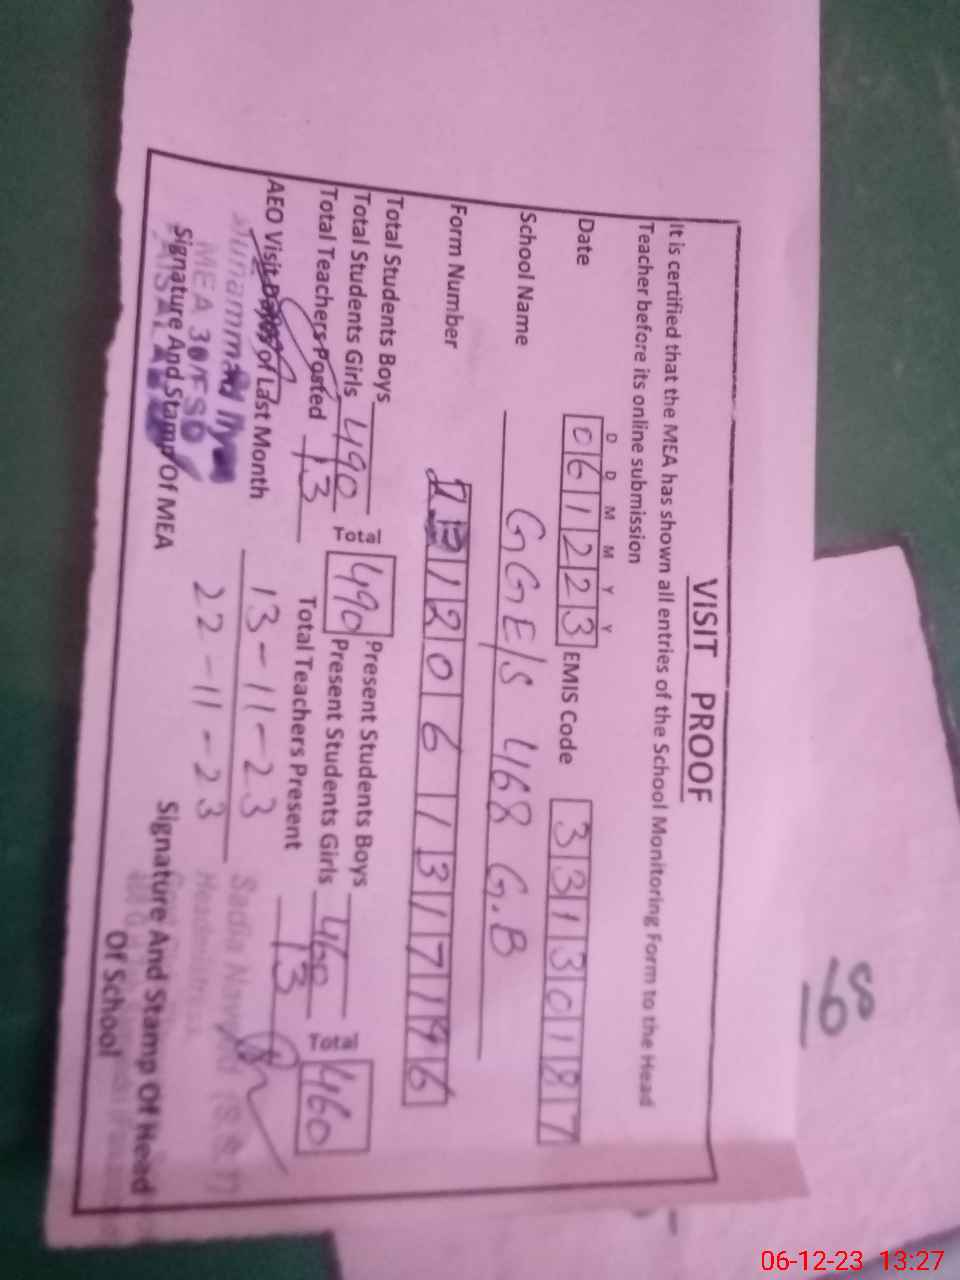 VISIT PROOF
It is certified that the MEA has shown all entries of the School Monitoring Form to the Head
Teacher before its online submission
D D M M Y Y
Date 061223 EMIS Code 33130187
School Name GGE/S 468 G.B
Form Number 12061317196
Total Students Boys Present Students Boys
Total Students Girls 490 Total 490 Present Students Girls 460 Total 460
Total Teachers Posted 13 Total Teachers Present 13
AEO Visit Dates of Last Month 13-11-23
22-11-23
MEA 30/FSD
Signature And Stamp Of MEA
Headmistress
Signature And Stamp Of Head
Of School
06-12-23 13:27